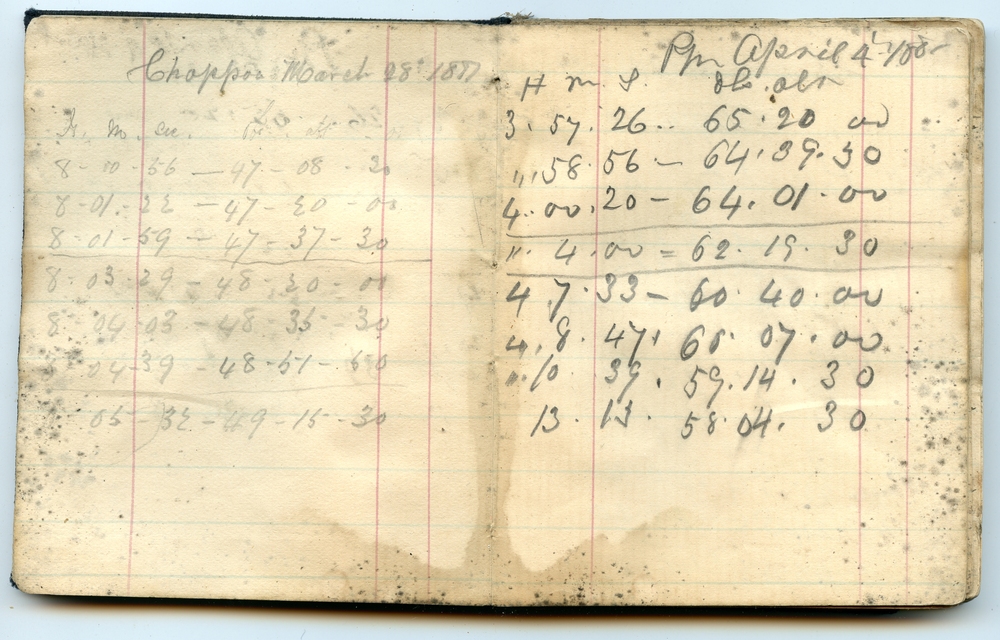 Choppoa March 28 1887
h. m. sec. obs
8 - 00 - 56 — 47 - 08 - 30
8 - 01 - 22 — 47 - 20 - 00
8 - 01 - 59 — 47 - 37 - 30
8 - 03 - 29 - 48 - 20 - 00
8 04 - 03 - 48 - 35 - 30
04 - 39 - 48 - 51 - 60
05 - 32 - 49 - 15 - 30
Pm April 4
H m. S. obs. alt
3. 57. 26 .. 65. 20 00
". 58. 56 — 64. 39. 30
4. 00. 20 — 64. 01. 00
". 4. 00 = 62. 19. 30
4 7. 33 — 60 40. 00
4. 8. 47. 60 07. 00
". 10 39. 59. 14. 30
13. 13. 58. 04. 30